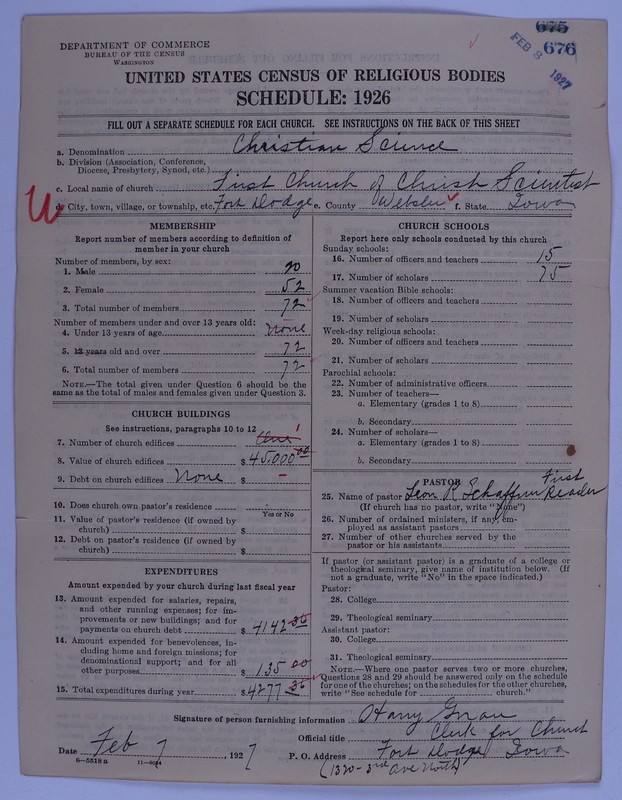 675
676
FEB 8 1927
DEPARTMENT OF COMMERCE
BUREAU OF THE CENSUS
WASHINGTON
UNITED STATES CENSUS OF RELIGIOUS BODIES
SCHEDULE: 1926
FILL OUT A SEPARATE SCHEDULE FOR EACH CHURCH. SEE INSTRUCTIONS ON THE BACK OF THIS SHEET
a. Denomination Christian Science
b. Division (Association, Conference,
Diocese, Presbytery, Synod, etc.)
c. Local name of church First Church of Christ Scientist
d. City, town, village, or township, etc. Fort Dodge e. County Webster f. State Iowa
MEMBERSHIP
Report number of members according to definition of
member in your church
Number of members, by sex:
1. Male 20
2. Female 52
3. Total number of members 72
Number of members under and over 13 years old:
4. Under 13 years of age none
5. 13 years old and over 72
6. Total number of members 72
NOTE.—The total given under Question 6 should be the
same as the total of males and females given under Question 3.
CHURCH BUILDINGS
See instructions, paragraphs 10 to 12
7. Number of church edifices One 1
8. Value of church edifices $ 45,000 00
9. Debt on church edifices None $ –
10. Does church own pastor's residence
Yes or No
11. Value of pastor's residence (if owned by
church) $
12. Debt on pastor's residence (if owned by
church) $
EXPENDITURES
Amount expended by your church during last fiscal year
13. Amount expended for salaries, repairs,
and other running expenses; for im-
provements or new buildings; and for
payments on church debt $ 4142 36
14. Amount expended for benevolences, in-
cluding home and foreign missions; for
denominational support; and for all
other purposes $ 135 00
15. Total expenditures during year $ 4277 36
CHURCH SCHOOLS
Report here only schools conducted by this church
Sunday schools:
16. Number of officers and teachers 15
17. Number of scholars 75
Summer vacation Bible schools:
18. Number of officers and teachers
19. Number of scholars
Week-day religious schools:
20. Number of officers and teachers
21. Number of scholars
Parochial schools:
22. Number of administrative officers
23. Number of teachers—
a. Elementary (grades 1 to 8)
b. Secondary
24. Number of scholars—
a. Elementary (grades 1 to 8)
b. Secondary
PASTOR
25. Name of pastor Leon R First Reader
(If church has no pastor, write "None")
26. Number of ordained ministers, if any, em-
ployed as assistant pastors
27. Number of other churches served by the
pastor or his assistants
If pastor (or assistant pastor) is a graduate of a college or
theological seminary, give name of institution below. (If
not a graduate, write "No" in the space indicated.)
Pastor:
28. College
29. Theological seminary
Assistant pastor:
30. College
31. Theological seminary
NOTE.—Where one pastor serves two or more churches,
Questions 28 and 29 should be answered only on the schedule
for one of the churches; on the schedules for the other churches,
write "See schedule for church."
Signature of person furnishing information Harry
Official title Clerk for Church
Date Feb 7, 1927 P. O. Address Fort Dodge Iowa
6—5518 a 11—9024 (1320-3rd Ave North)